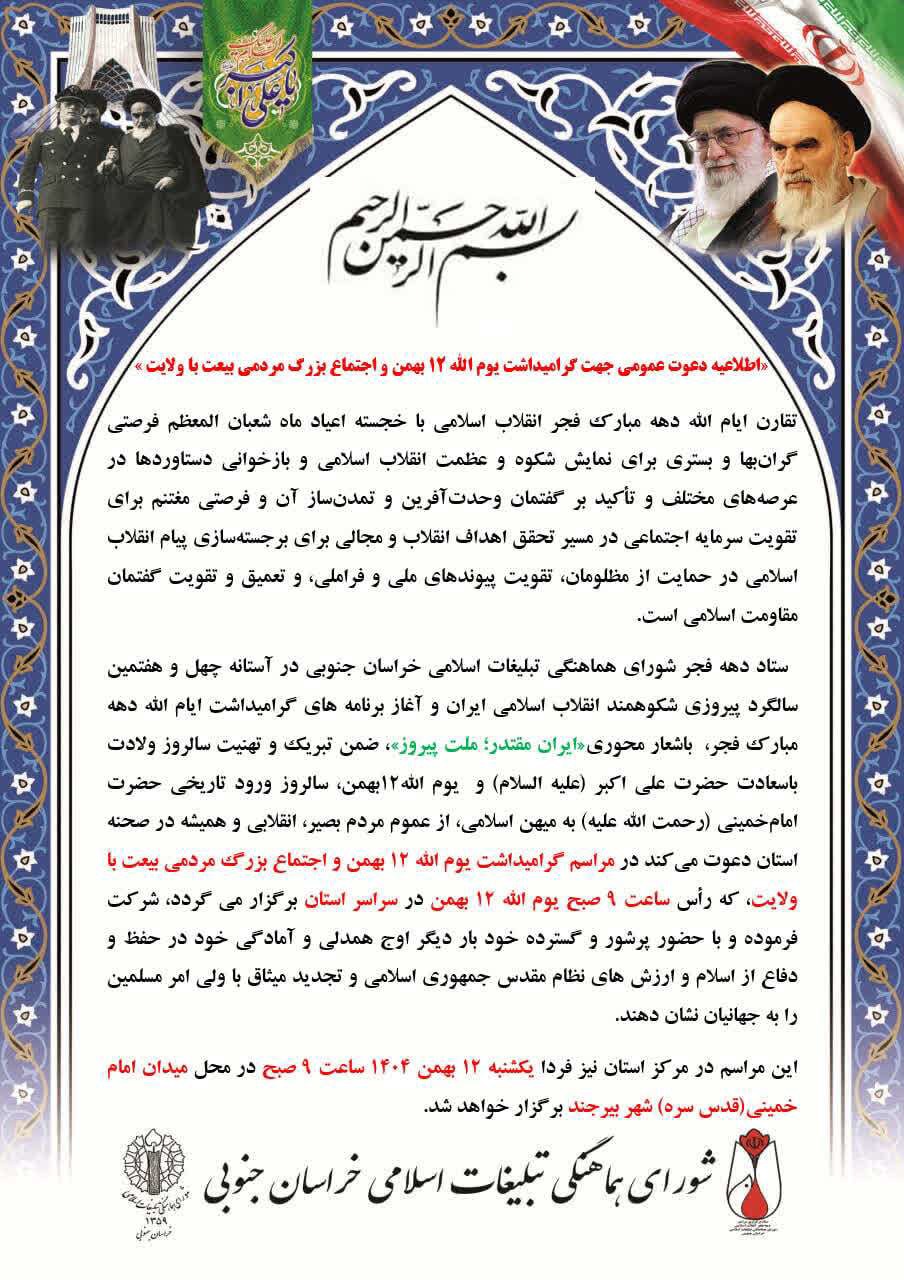 یا علی اکبر
بسم الله الرحمن الرحیم
«اطلاعیه دعوت عمومی جهت گرامیداشت یوم الله ۱۲ بهمن و اجتماع بزرگ مردمی بیعت با ولایت »
تقارن ایام الله دهه مبارک فجر انقلاب اسلامی با خجسته اعیاد ماه شعبان المعظم فرصتی
گران‌بها و بستری برای نمایش شکوه و عظمت انقلاب اسلامی و بازخوانی دستاوردها در
عرصه‌های مختلف و تأکید بر گفتمان وحدت‌آفرین و تمدن‌ساز آن و فرصتی مغتنم برای
تقویت سرمایه اجتماعی در مسیر تحقق اهداف انقلاب و مجالی برای برجسته‌سازی پیام انقلاب
اسلامی در حمایت از مظلومان، تقویت پیوندهای ملی و فراملی، و تعمیق و تقویت گفتمان
مقاومت اسلامی است.
ستاد دهه فجر شورای هماهنگی تبلیغات اسلامی خراسان جنوبی در آستانه چهل و هفتمین
سالگرد پیروزی شکوهمند انقلاب اسلامی ایران و آغاز برنامه های گرامیداشت ایام الله دهه
مبارک فجر، باشعار محوری«ایران مقتدر؛ ملت پیروز»، ضمن تبریک و تهنیت سالروز ولادت
باسعادت حضرت علی اکبر (علیه السلام) و یوم الله۱۲بهمن، سالروز ورود تاریخی حضرت
امام‌خمینی (رحمت الله علیه) به میهن اسلامی، از عموم مردم بصیر، انقلابی و همیشه در صحنه
استان دعوت می‌کند در مراسم گرامیداشت یوم الله ۱۲ بهمن و اجتماع بزرگ مردمی بیعت با
ولایت، که رأس ساعت ۹ صبح یوم الله ۱۲ بهمن در سراسر استان برگزار می گردد، شرکت
فرموده و با حضور پرشور و گسترده خود بار دیگر اوج همدلی و آمادگی خود در حفظ و
دفاع از اسلام و ارزش های نظام مقدس جمهوری اسلامی و تجدید میثاق با ولی امر مسلمین
را به جهانیان نشان دهند.
این مراسم در مرکز استان نیز فردا یکشنبه ۱۲ بهمن ۱۴۰۴ ساعت ۹ صبح در محل میدان امام
خمینی(قدس سره) شهر بیرجند برگزار خواهد شد.
شورای هماهنگی تبلیغات اسلامی خراسان جنوبی
شورای هماهنگی تبلیغات اسلامی
۱۳۵۹
خراسان جنوبی